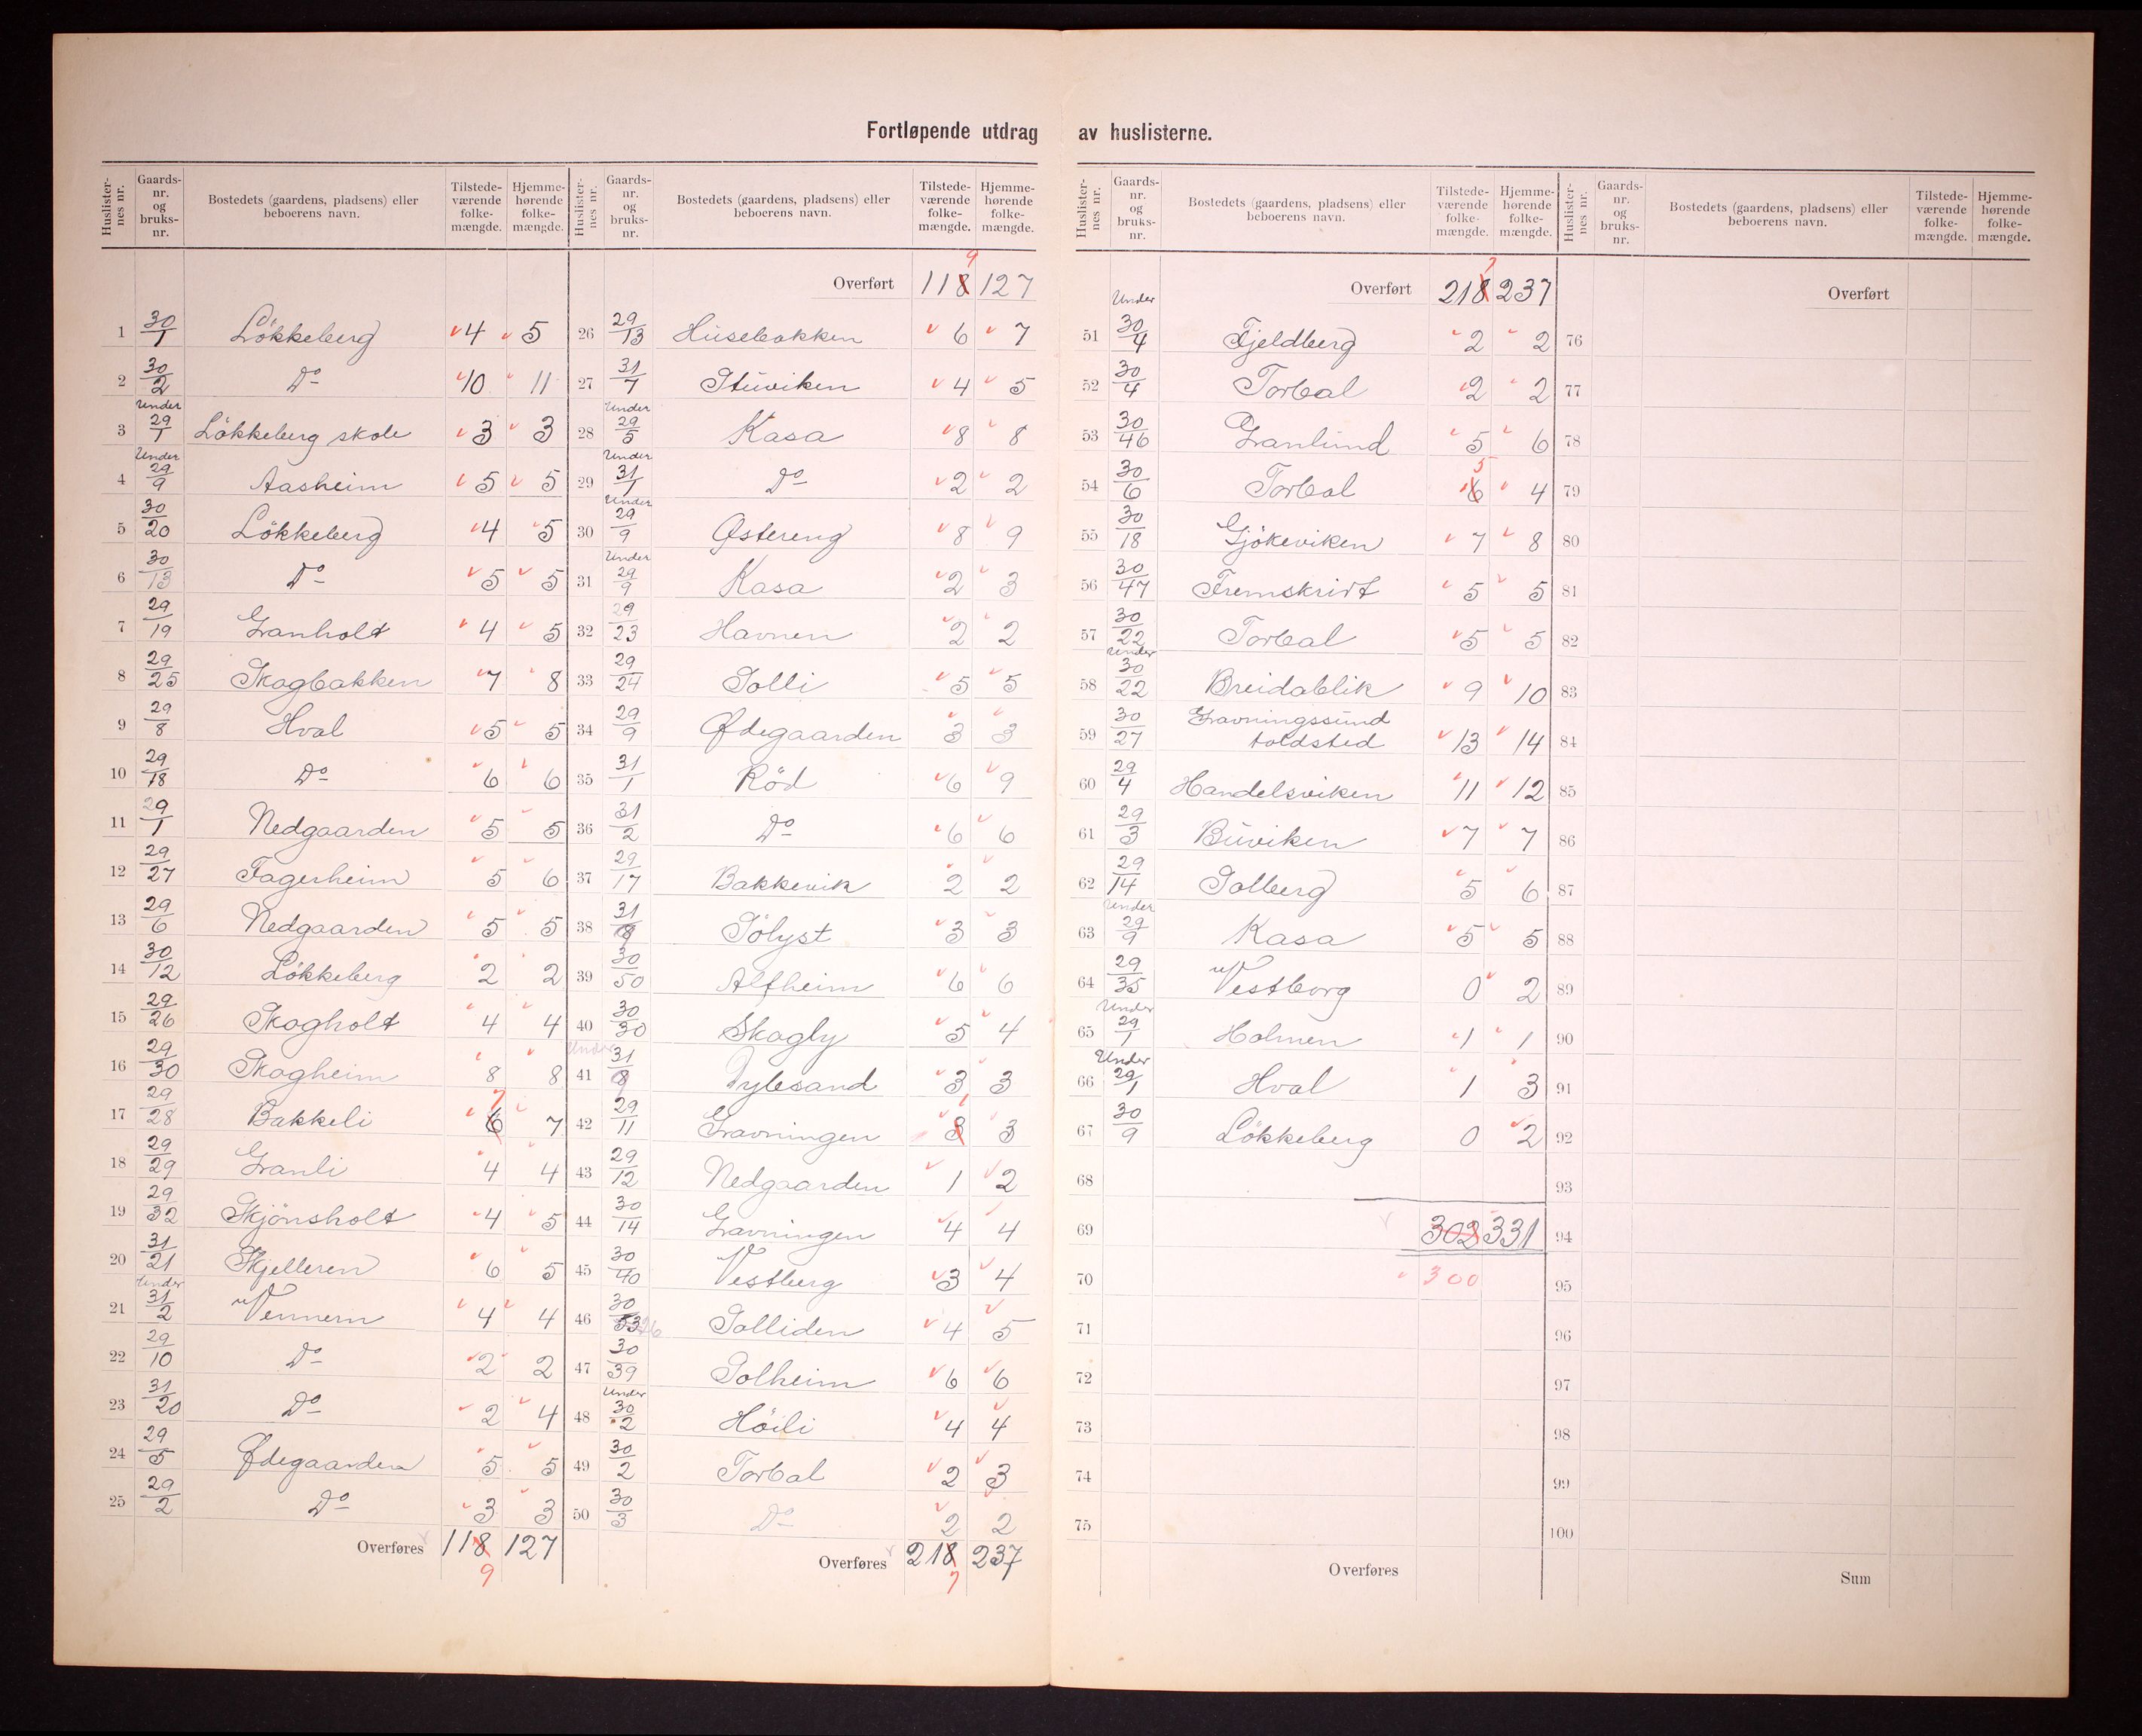 Fortløpende utdrag av huslisterne.
Huslisternes nr. Gaardsnr. og bruksnr. Bostedets (gaardens, pladsens) eller beboerens navn. Tilstedeværende folkemængde. Hjemmehørende folkemængde.
1 30/1 Lökkeberg 4 5
2 30/2 Do 10 11
3 Under 29/1 Lökkeberg skole 3 3
4 Under 29/9 Aasheim 5 5
5 30/20 Lökkeberg 4 5
6 30/13 Do 5 5
7 29/19 Granholt 4 5
8 29/25 Skogbakken 7 8
9 29/8 Hval 5 5
10 29/18 Do 6 6
11 29/1 Nedgaarden 5 5
12 29/27 Fagerheim 5 6
13 29/6 Nedgaarden 5 5
14 30/12 Lökkeberg 2 2
15 29/26 Skogholt 4 4
16 29/30 Skogheim 8 8
17 29/28 Bakkeli 6 7 7
18 29/29 Granli 4 4
19 29/32 Skjönsholt 4 5
20 31/21 Skjelleren 6 5
21 Under 31/2 Vennern 4 4
22 29/10 Do 2 2
23 31/20 Do 2 4
24 29/5 Ødegaarden 5 5
25 29/2 Do 3 3
Overføres 118 127
9
Huslisternes nr. Gaardsnr. og bruksnr. Bostedets (gaardens, pladsens) eller beboerens navn. Tilstedeværende folkemængde. Hjemmehørende folkemængde.
9
Overført 118 127
26 29/13 Husebakken 6 7
27 31/7 Stuviken 4 5
28 Under 29/5 Kasa 8 8
29 Under 31/1 Do 2 2
30 Under 29/9 Østereng 8 9
31 Under 29/9 Kasa 2 3
32 29/23 Havnen 2 2
33 29/24 Solli 5 5
34 29/9 Ødegaarden 3 3
35 31/1 Röd 6 9
36 31/2 Do 6 6
37 29/17 Bakkevik 2 2
38 31/9 Sölyst 3 3
39 30/50 Alfheim 6 6
40 30/30 Skogly 5 4
41 Under 31/8 Dylesand 3 3
42 29/11 Gravningen 3 1 3
43 29/12 Nedgaarden 1 2
44 30/14 Gravningen 4 4
45 30/40 Vestberg 3 4
46 30/53 26 Solliden 4 5
47 30/39 Solheim 6 6
48 Under 30/2 Höili 4 4
49 30/2 Torbal 2 3
50 30/3 Do 2 2
Overføres 218 237
7
Huslisternes nr. Gaardsnr. og bruksnr. Bostedets (gaardens, pladsens) eller beboerens navn. Tilstedeværende folkemængde. Hjemmehørende folkemængde.
7
Overført 218 237
51 Under 30/4 Fjeldberg 2 2
52 30/4 Torbal 2 2
53 30/46 Granlund 5 6
54 30/6 Torbal 6 5 4
55 30/18 Gjökeviken 7 8
56 30/47 Fremskridt 5 5
57 30/22 Torbal 5 5
58 Under 30/22 Breidablik 9 10
59 30/27 Gravningssund toldsted 13 14
60 29/4 Handelsviken 11 12
61 29/3 Buviken 7 7
62 29/14 Solberg 5 6
63 Under 29/9 Kasa 5 5
64 29/35 Vestborg 0 2
65 Under 29/1 Holmen 1 1
66 Under 29/1 Hval 1 3
67 30/9 Lökkeberg 0 2
68
69 302 331
70 300
71
72
73
74
75
Overføres
Huslisternes nr. Gaardsnr. og bruksnr. Bostedets (gaardens, pladsens) eller beboerens navn. Tilstedeværende folkemængde. Hjemmehørende folkemængde.
Overført
76
77
78
79
80
81
82
83
84
85
86
87
88
89
90
91
92
93
94
95
96
97
98
99
100
Sum